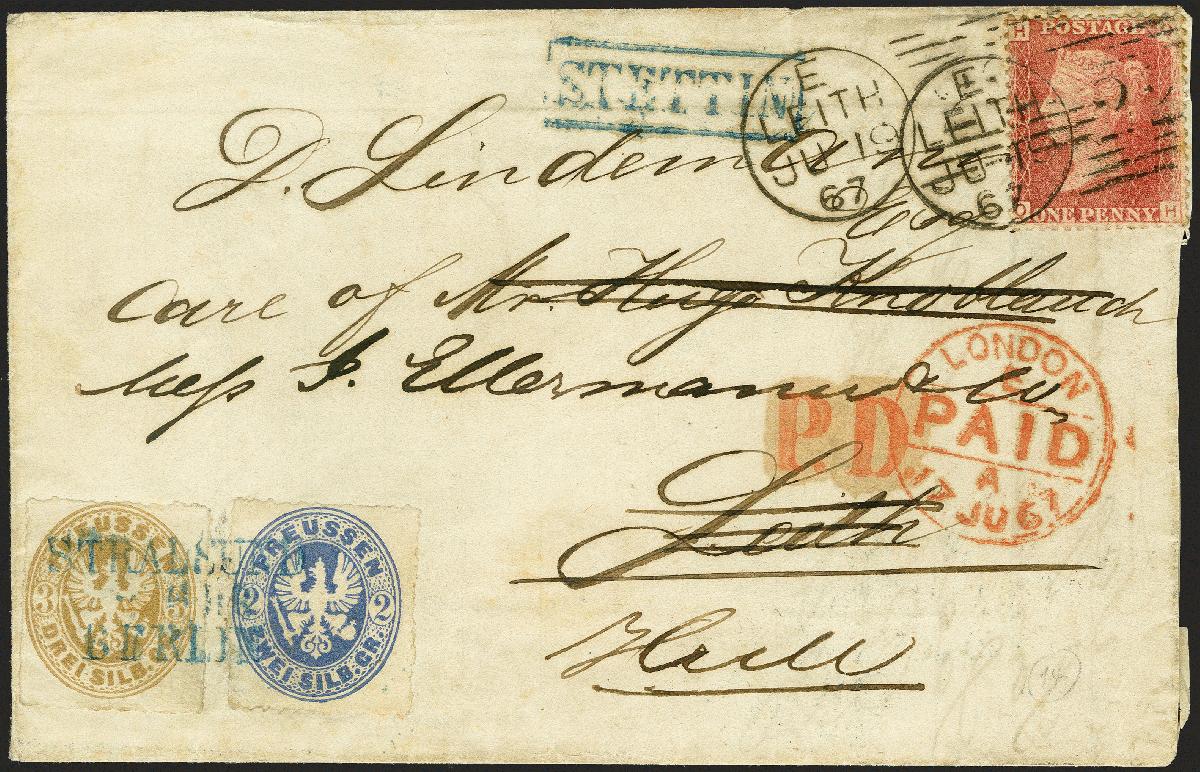 STETTIN
E
LEITH
JU 19
67
E
LEITH
JU 19
67
H
POSTAGE
O
ONE PENNY
H
D. Lindemann
Esq
care of Mr. Hugo Knoblauch
Mess J. Ellermann & Co
P.D
LONDON
PAID
A
17 JU 67
Leith
Hull
PREUSSEN
3
3
DREI SILB.GR.
PREUSSEN
2
2
ZWEI SILB.GR.
STRALSUND
BERLIN
(14)